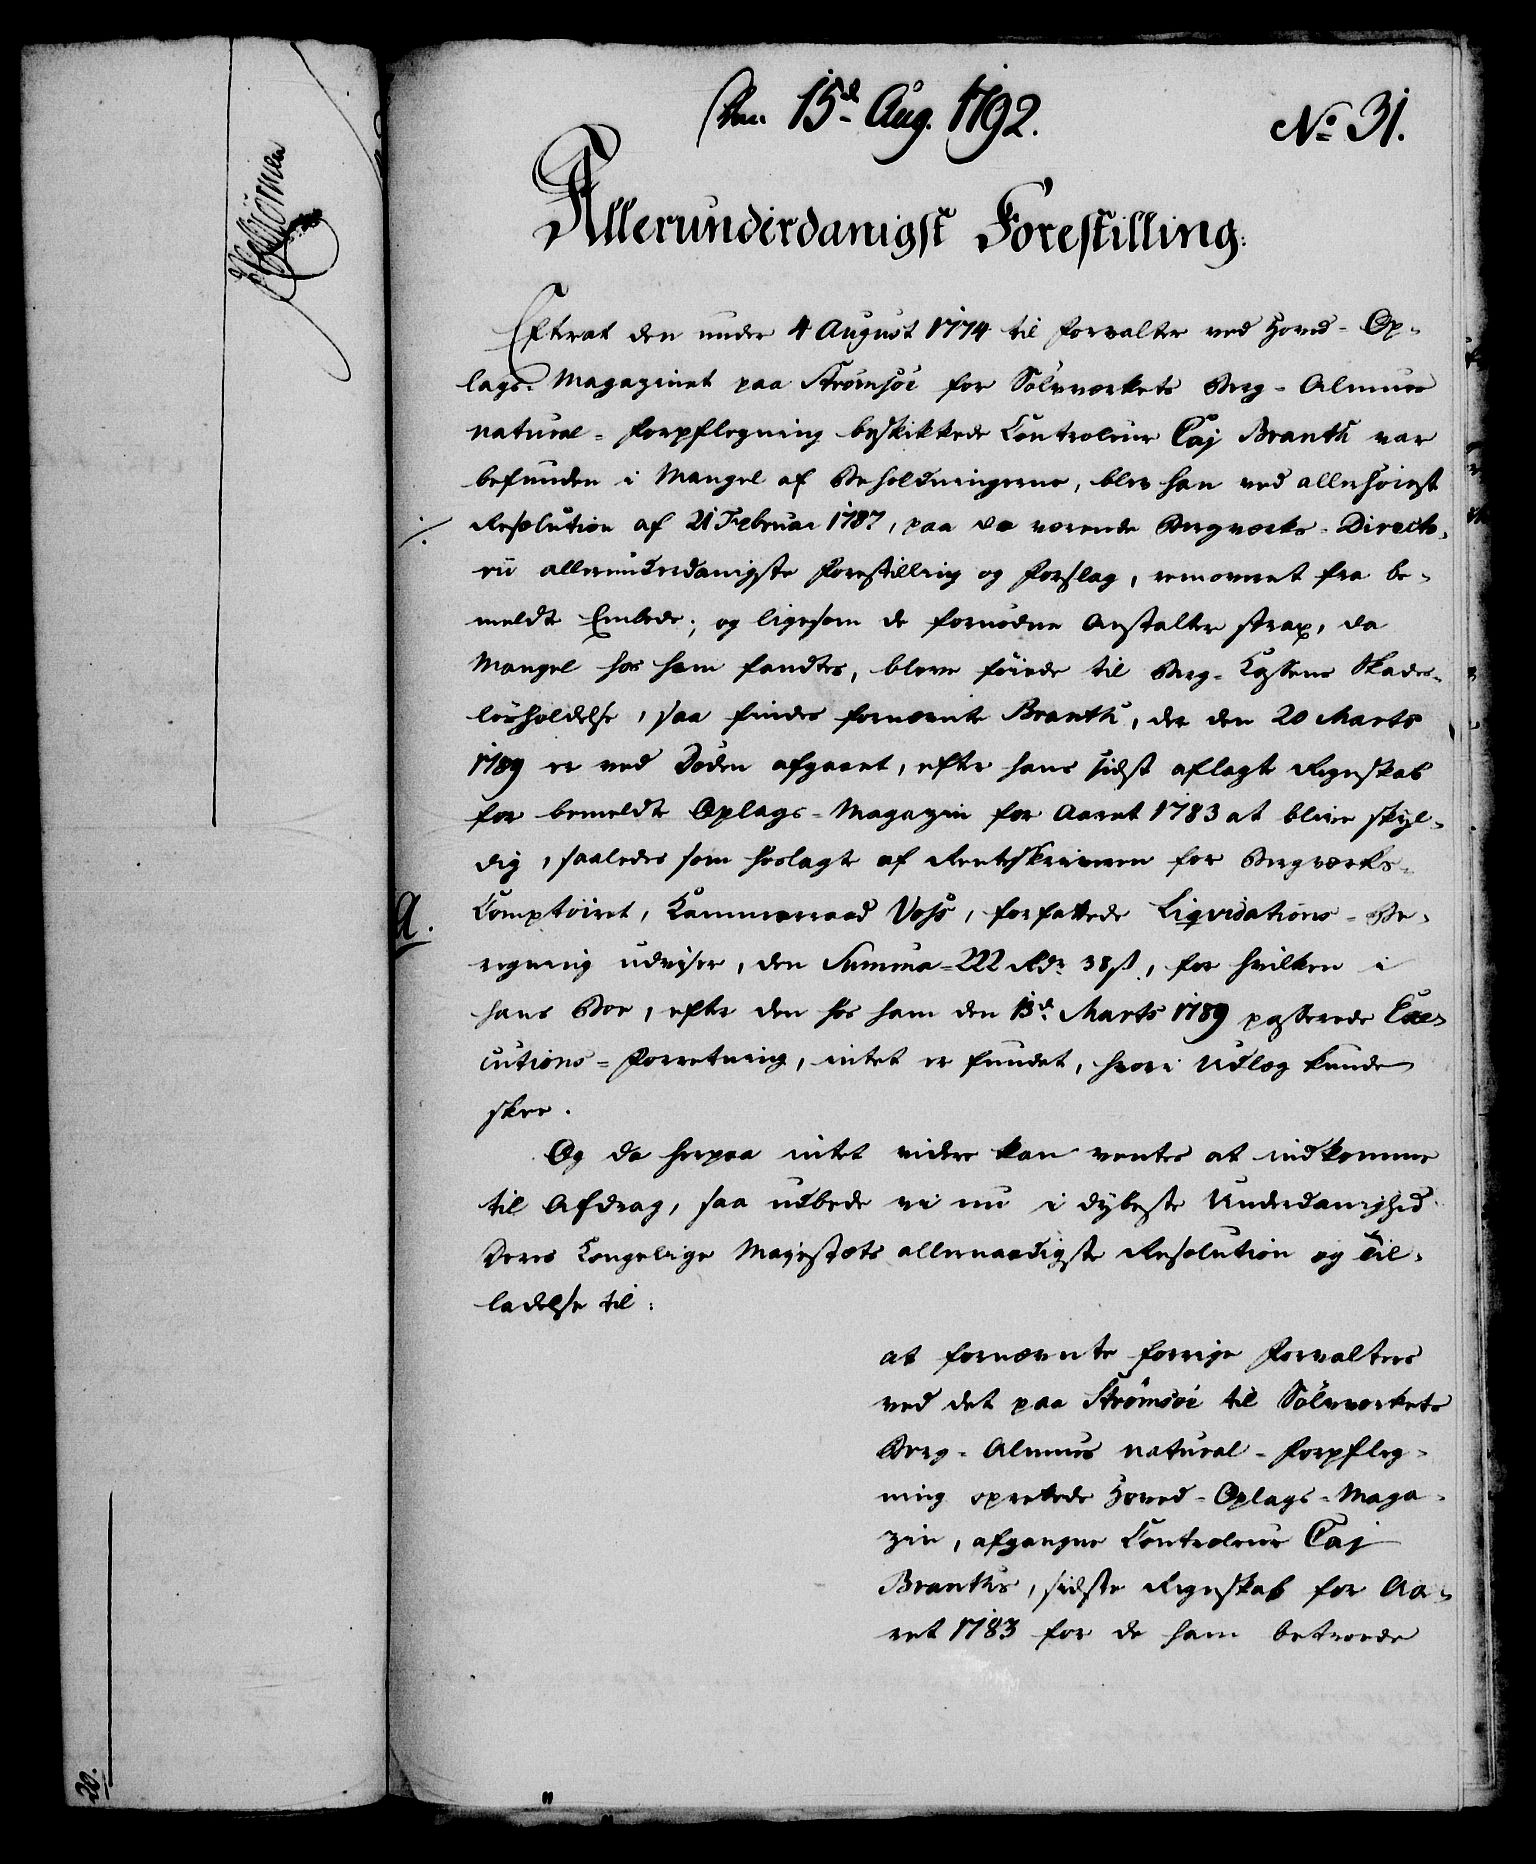 Den 15de Aug. 1792.
No. 31.
Allerunderdanigst Forestilling:
Efterat den under 4 August 1774 til Forvalter ved Hoved-Op-
lags-Magazinet paa Strømsöe for Sölvværkets Berg-Almues
natural-Forpflegning beskikkede Controleur Caj Branth var
befunden i Mangel af Beholdningerne, blev han ved allerhöiest
Resolution af 21 Februar 1787, paa da værende Bergværks-Directo-
rii allerunderdanigste Forestilling og Forslag, removeret fra be-
meldte Embede; og ligesom de fornødne Anstalter strax, da
Mangel hos ham fandtes, bleve föiede til Berg-Cassens Skades-
lösholdelse, saa findes fornævnte Branth, der den 20 Marts
1789 er ved Döden afgaaet, efter hans sidst aflagte Regnskab
for bemeldte Oplags-Magazin for Aaret 1783 at blive skyl-
dig, saaledes som hoslagte af Renteskriveren for Bergværks-
A.
Comptoiret, Kammerraad Voss, forfattede Liqvidations-Be-
regning udviser, den Summa 222 Rdr 38 s, for hvilken i
hans Boe, efter den hos ham den 13de Marts 1789 passerede Exe-
cutions-Forretning, intet er fundet, hvori Udlæg kunde
skee.
Og da herpaa intet videre kan ventes at indkomme
til Afdrag, saa udbede vi nu i dybeste Underdanighed
Deres Kongelige Majestæts allernaadigste Resolution og Til-
ladelse til:
at fornævnte forrige Forvalters
ved det paa Strømsöe til Sölvværkets
Berg-Almues natural-Forpfleg-
ning oprettede Hoved-Oplags-Maga-
zin, afgangne Controleur Caj
Branths, sidste Regnskab for Aa-
ret 1783 for de ham betroede
20.